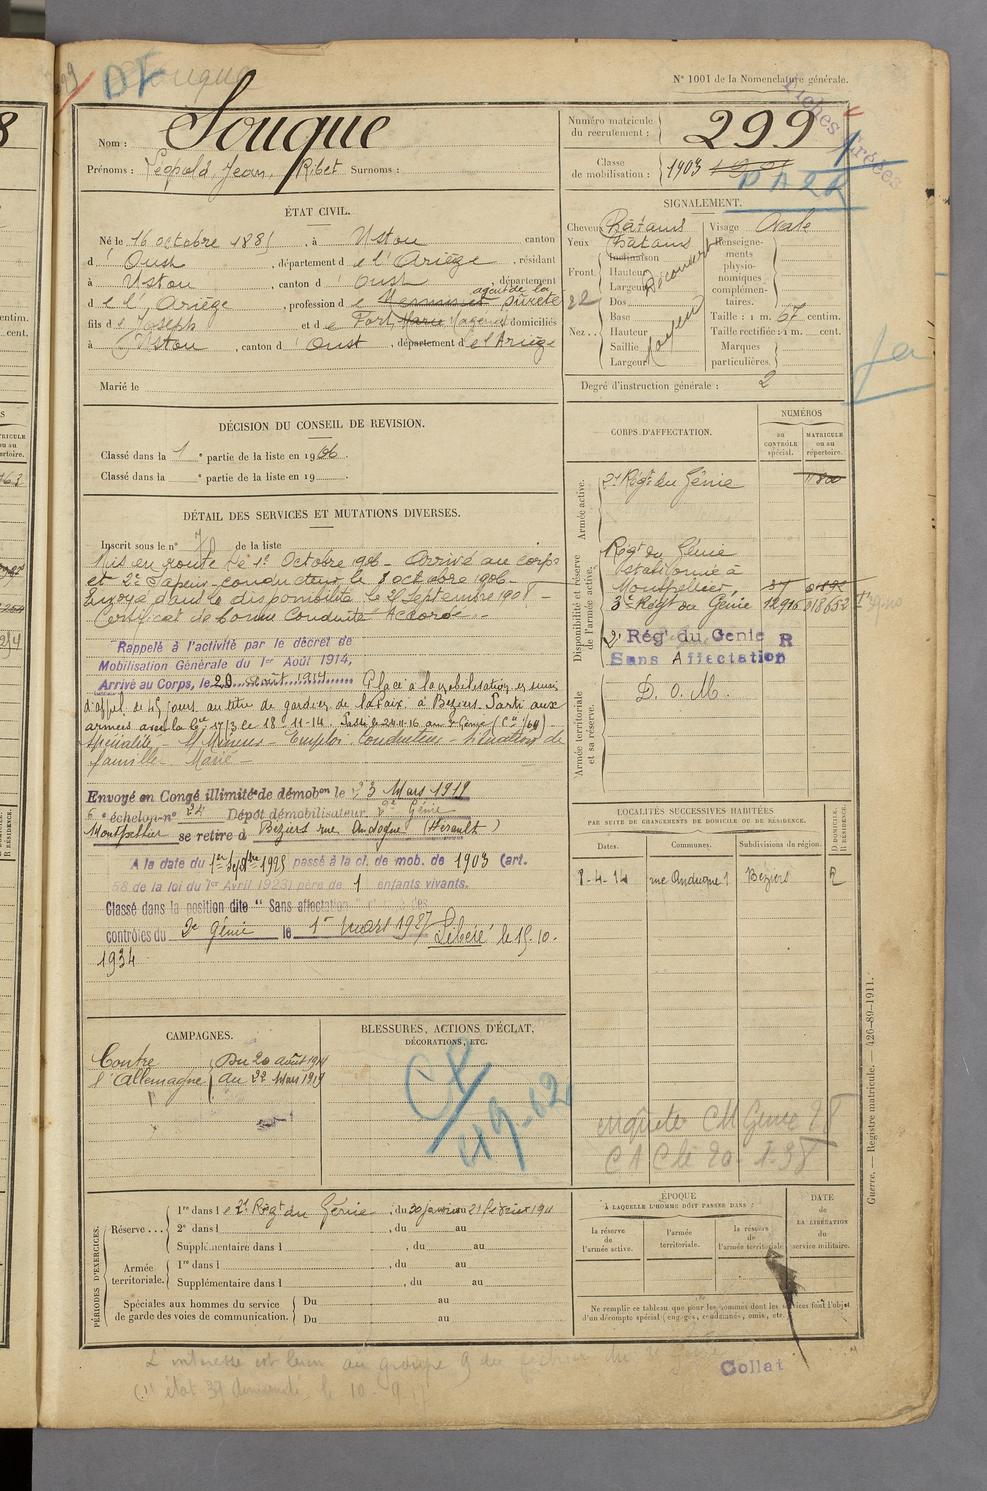 N° 1001 de la Nomenclature générale.
Fiches
Nom : Souque
Prénoms : Léopold, Jean, Ribet Surnoms :
Numéro matricule du recrutement : 299
Classe de mobilisation : 1903
ÉTAT CIVIL.
Né le 16 octobre 1885, à Ustou canton
d'Oust, département de l'Ariège, résidant
à Ustou, canton d'Oust, département
agent de la
de l'Ariège, profession de sûreté
fils de Joseph et de Fort domiciliés
à Ustou, canton d'Oust, département de l'Ariège
Marié le
SIGNALEMENT.
Cheveux Châtains
Yeux Châtains
Front Inclinaison
Hauteur
Largeur
Découvert
Nez Dos
Base
Hauteur
Saillie
Largeur
Moyen
Visage Ovale
Renseignements physionomiques complémentaires.
Taille : 1 m. 67 centim.
Taille rectifiée : 1 m. cent.
Marques particulières.
Degré d'instruction générale : 2
DÉCISION DU CONSEIL DE REVISION.
Classé dans la 1e partie de la liste en 1906.
Classé dans la e partie de la liste en 19
CORPS D'AFFECTATION.
NUMÉROS
AU CONTRÔLE spécial.
MATRICULE ou au répertoire.
Armée active.
2e Régt du Génie
Disponibilité et réserve de l'armée active.
Régt du Génie
Stationné à
Montpellier
3e Régt du Génie 12916 018652
2e Régt du Génie R
Sans Affectation
Armée territoriale et sa réserve.
D. O. M.
DÉTAIL DES SERVICES ET MUTATIONS DIVERSES.
Inscrit sous le n° 70 de la liste
Mis en route le 1er Octobre 1906 - Arrivé au corps
et 2e Sapeur-conducteur le 8 octobre 1906 -
Envoyé dans la disponibilité le 25 Septembre 1908 -
Certificat de bonne Conduite Accordé.
Rappelé à l'activité par le décret de
Mobilisation Générale du 1er Août 1914,
Arrivé au Corps, le 20 août 1914 Placé à la mobilisation en sursis
d'appel de 45 jours au titre de gardien de la Paix à Béziers. Parti aux
armées avec la Cie 17/3 le 18-11-14. Passé le 24-11-16 au
Spécialité - Mineur - Emploi - Conducteur - Situation de
famille - Marié -
Envoyé en Congé illimité de démobon le 23 Mars 1919
6e échelon n° 24 Dépôt démobilisateur 2e Génie
Montpellier se retire à Béziers rue Andoque (Hérault)
A la date du 1er Septbre 1925 passé à la cl. de mob. de 1903 (art.
58 de la loi du 1er Avril 1923) père de 1 enfants vivants.
Classé dans la position dite "Sans affectation"
contrôles du 2e Génie le 1er Mars 1927 Libéré le 15.10.
1934
LOCALITÉS SUCCESSIVES HABITÉES
PAR SUITE DE CHANGEMENTS DE DOMICILE OU DE RÉSIDENCE.
Dates. Communes. Subdivisions de région. D DOMICILE. R RÉSIDENCE.
8-4-14 rue Andoque 1 Béziers R
CAMPAGNES.
Contre l'Allemagne
Du 20 août 1914
au 22 Mars 1919
BLESSURES, ACTIONS D'ÉCLAT,
DÉCORATIONS, ETC.
PÉRIODES D'EXERCICES.
Réserve...
1re dans le 2e Régt du Génie, du 30 janvier au 21 février 1911
2e dans l , du au
Supplémentaire dans l , du au
Armée territoriale.
1re dans l , du au
Supplémentaire dans l , du au
Spéciales aux hommes du service de garde des voies de communication.
Du au
Du au
ÉPOQUE
À LAQUELLE L'HOMME DOIT PASSER DANS :
la réserve de l'armée active.
l'armée territoriale.
la réserve de l'armée territoriale.
DATE
de
LA LIBÉRATION
du
service militaire.
Ne remplir ce tableau que pour les hommes dont les services font l'objet
d'un décompte spécial (engagés, condamnés, omis, etc.
Guerre. — Registre matricule. — 426-89-1911.
Collat